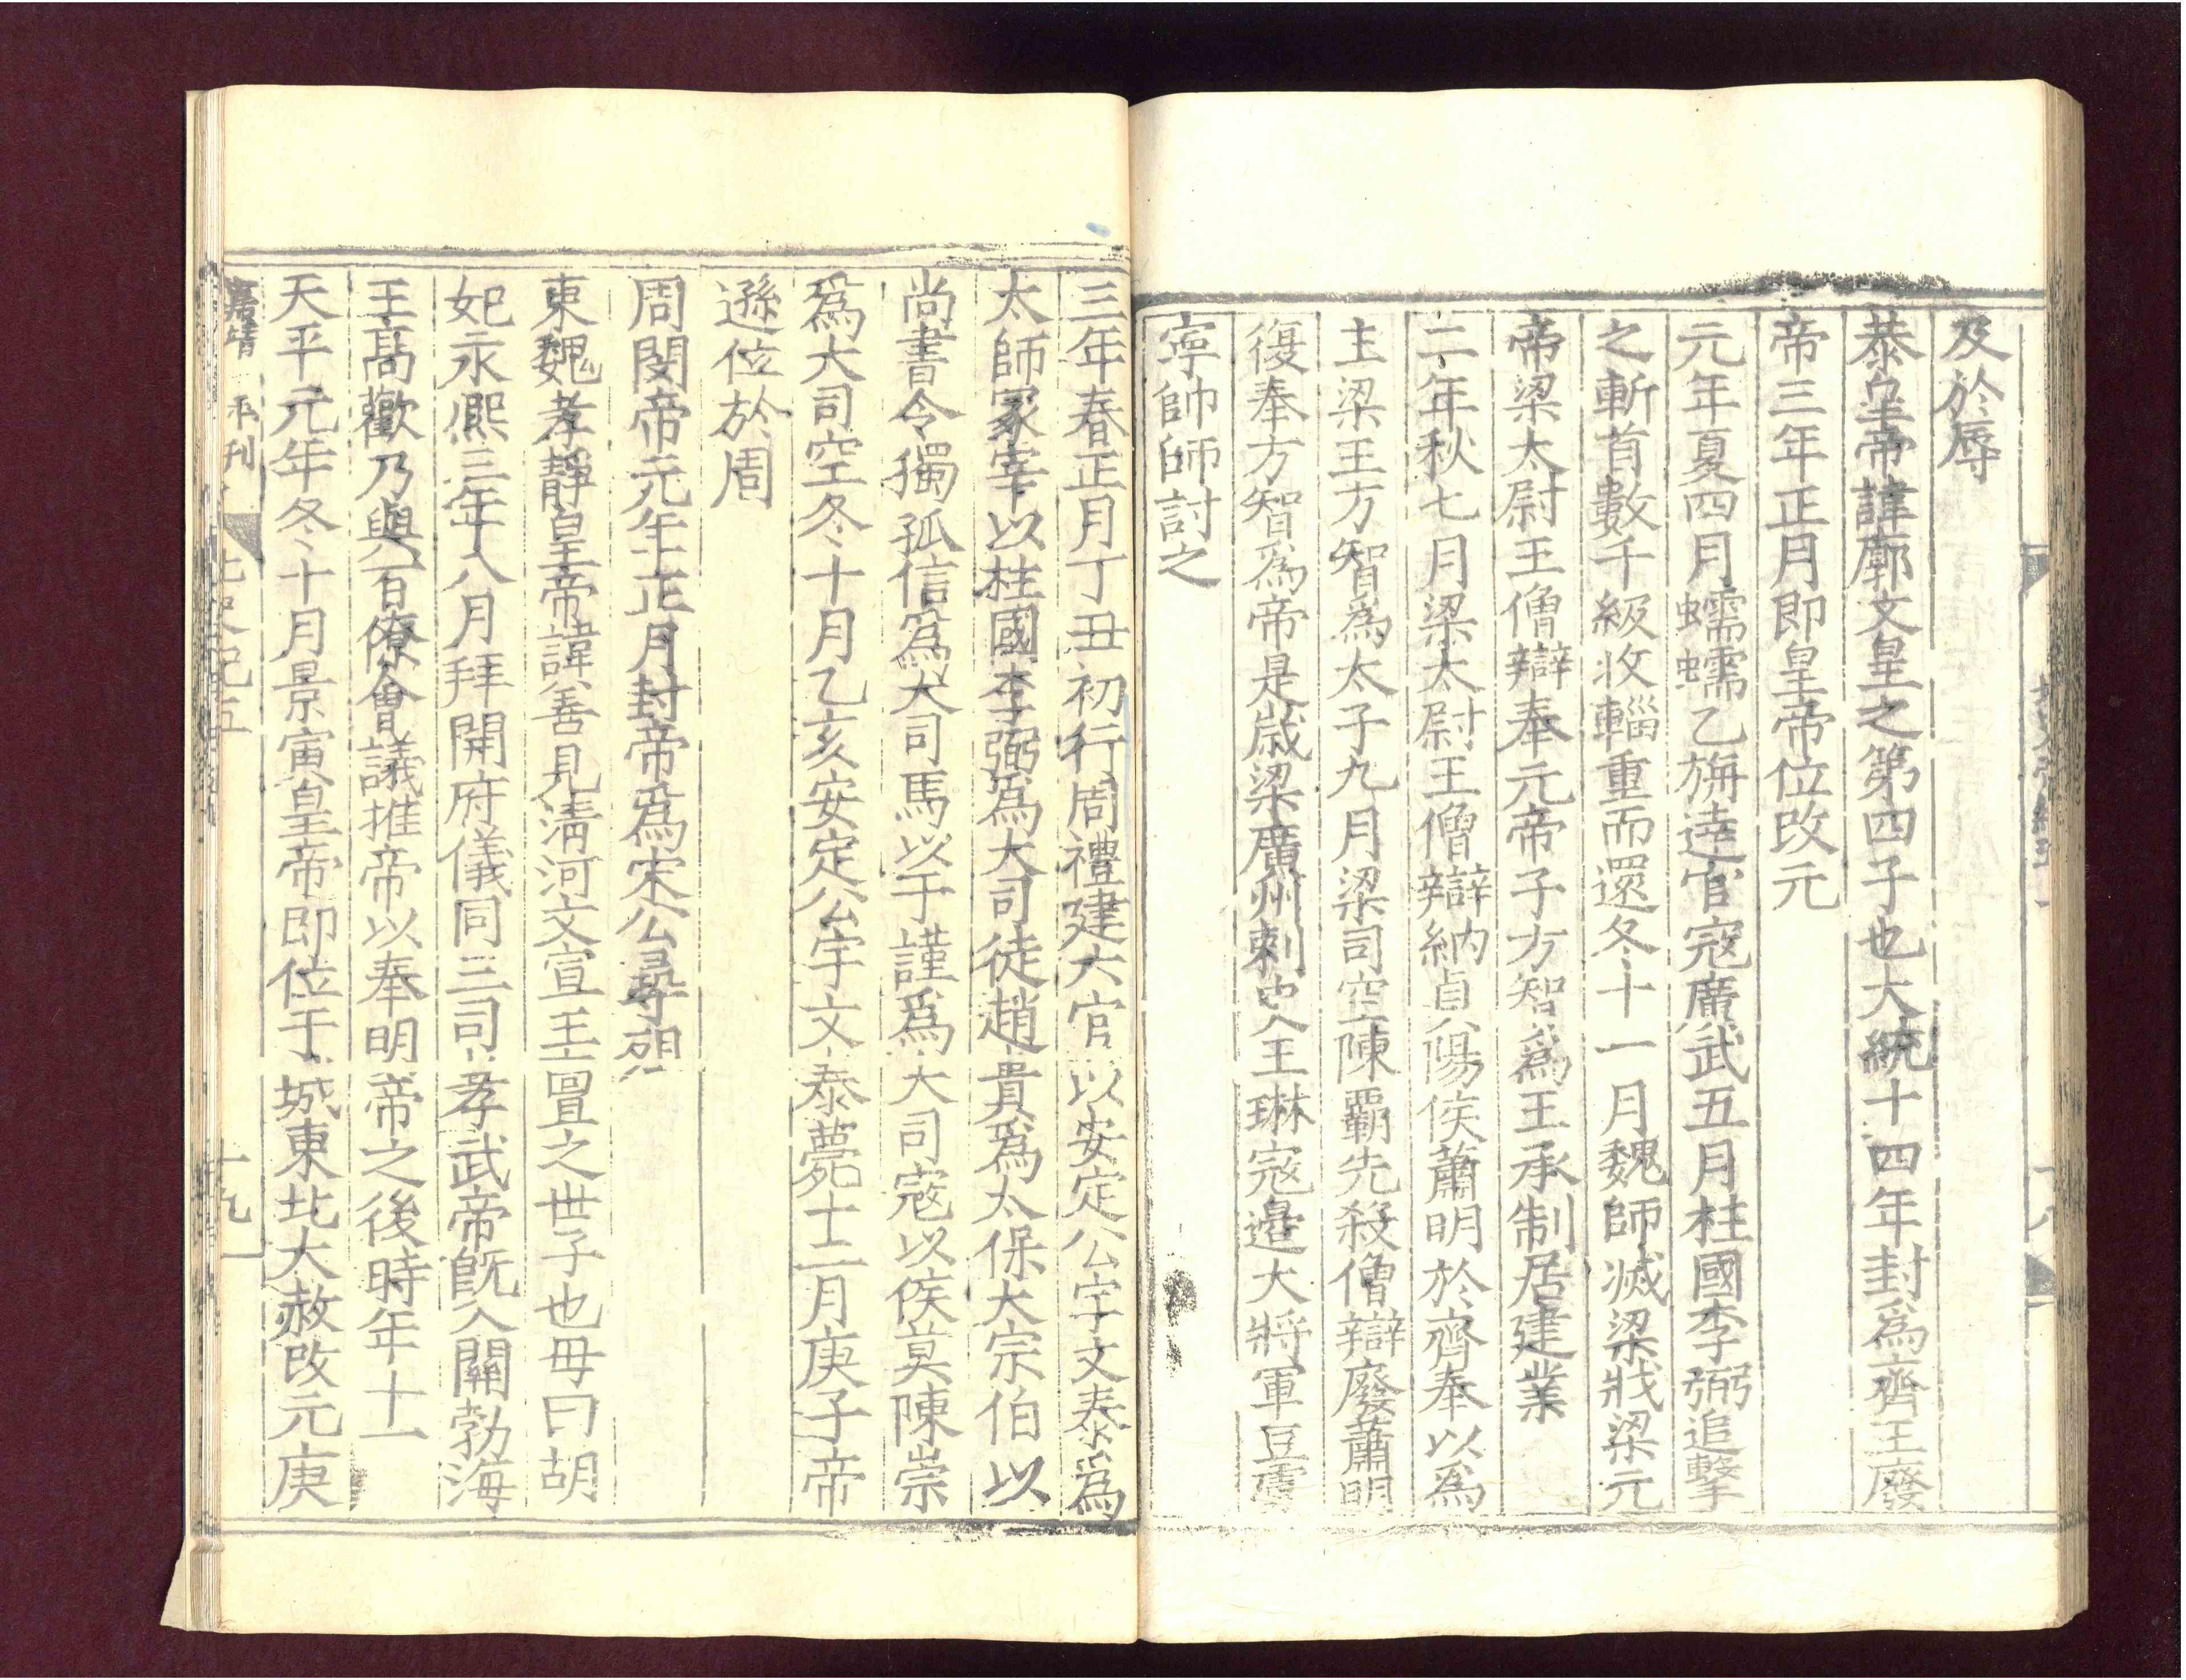 及於辱
恭皇帝諱廓文皇之第四子也大統十四年封爲齊王廢
帝三年正月即皇帝位改元
元年夏四月蠕蠕乙旃達官寇廣武五月柱國李弼追擊
之斬首數千級收輜重而還冬十一月魏師滅梁戕梁元
帝梁太尉王僧辯奉元帝子方智爲王承制居建業
二年秋七月梁太尉王僧辯納貞陽侯蕭明於齊奉以爲
主梁王方智爲太子九月梁司空陳霸先殺僧辯廢蕭明
復奉方智爲帝是歲梁廣州刺史王琳寇邊大將軍豆盧
寧帥師討之
三年春正月丁丑初行周禮建六官以安定公宇文泰爲
太師冢宰以柱國李弼爲大司徒趙貴爲太保大宗伯以
尚書令獨孤信爲大司馬以于謹爲大司寇以侯莫陳崇
爲大司空冬十月乙亥安定公宇文泰薨十二月庚子帝
遜位於周
周閔帝元年正月封帝爲宋公尋殂
東魏孝靜皇帝諱善見清河文宣王亶之世子也母曰胡
妃永熙三年八月拜開府儀同三司孝武帝既入關勃海
王高歡乃與百僚會議推帝以奉明帝之後時年十一
天平元年冬十月景寅皇帝即位于城東北大赦改元庚
嘉靖 年刊
北史紀五
十九